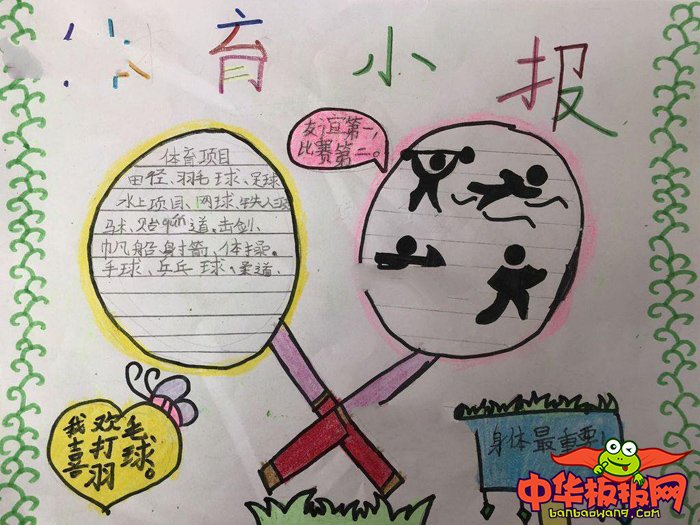 育小报
体育项目
田径、羽毛球、足球
水上项目、网球、铁人三
马术、跆quán道。击剑、
帆船射箭、体操。
手球、乒乓球、柔道、
友谊第一,
比赛第二。
我喜
欢打羽
毛球。
身体最重要
中华板报网
banbaowang.com